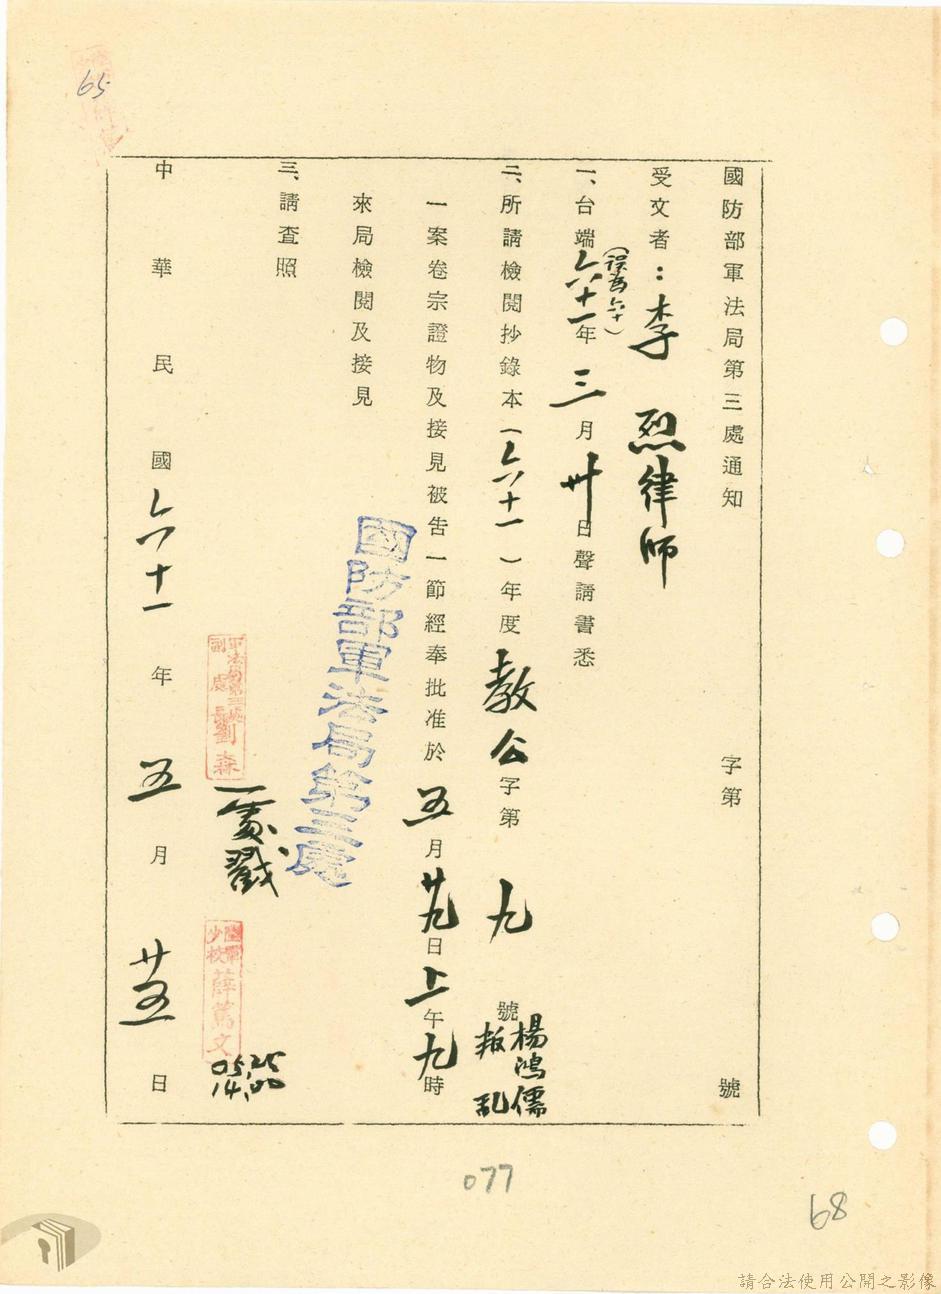 65
國防部軍法局第三處通知 字第 號
受文者：李 烈律師
一、台端六十一年三月卅日聲請書悉
(誤為六十)
二、所請檢閱抄錄本(六十一)年度教公字第 九 號楊鴻儒叛乱
一案卷宗證物及接見被告一節經奉批准於五月廿九日上午九時
來局檢閱及接見
三、請查照
國防部軍法局第三處
軍法局第三處
副處長劉森
陸軍少校薛篤文
05.25
14,00
中華民國六十一年五月廿五日
077
68
請合法使用公開之影像